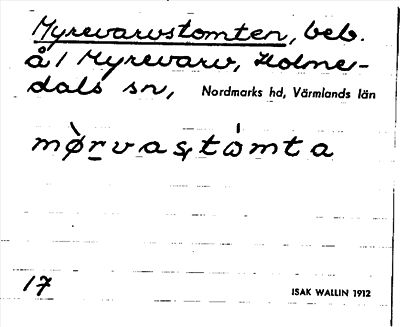 Myrevarvstomten, beb.
å 1 Myrevarv, Holme-
dals sn, Nordmarks hd, Värmlands län
mø̀rvastómta
17
ISAK WALLIN 1912